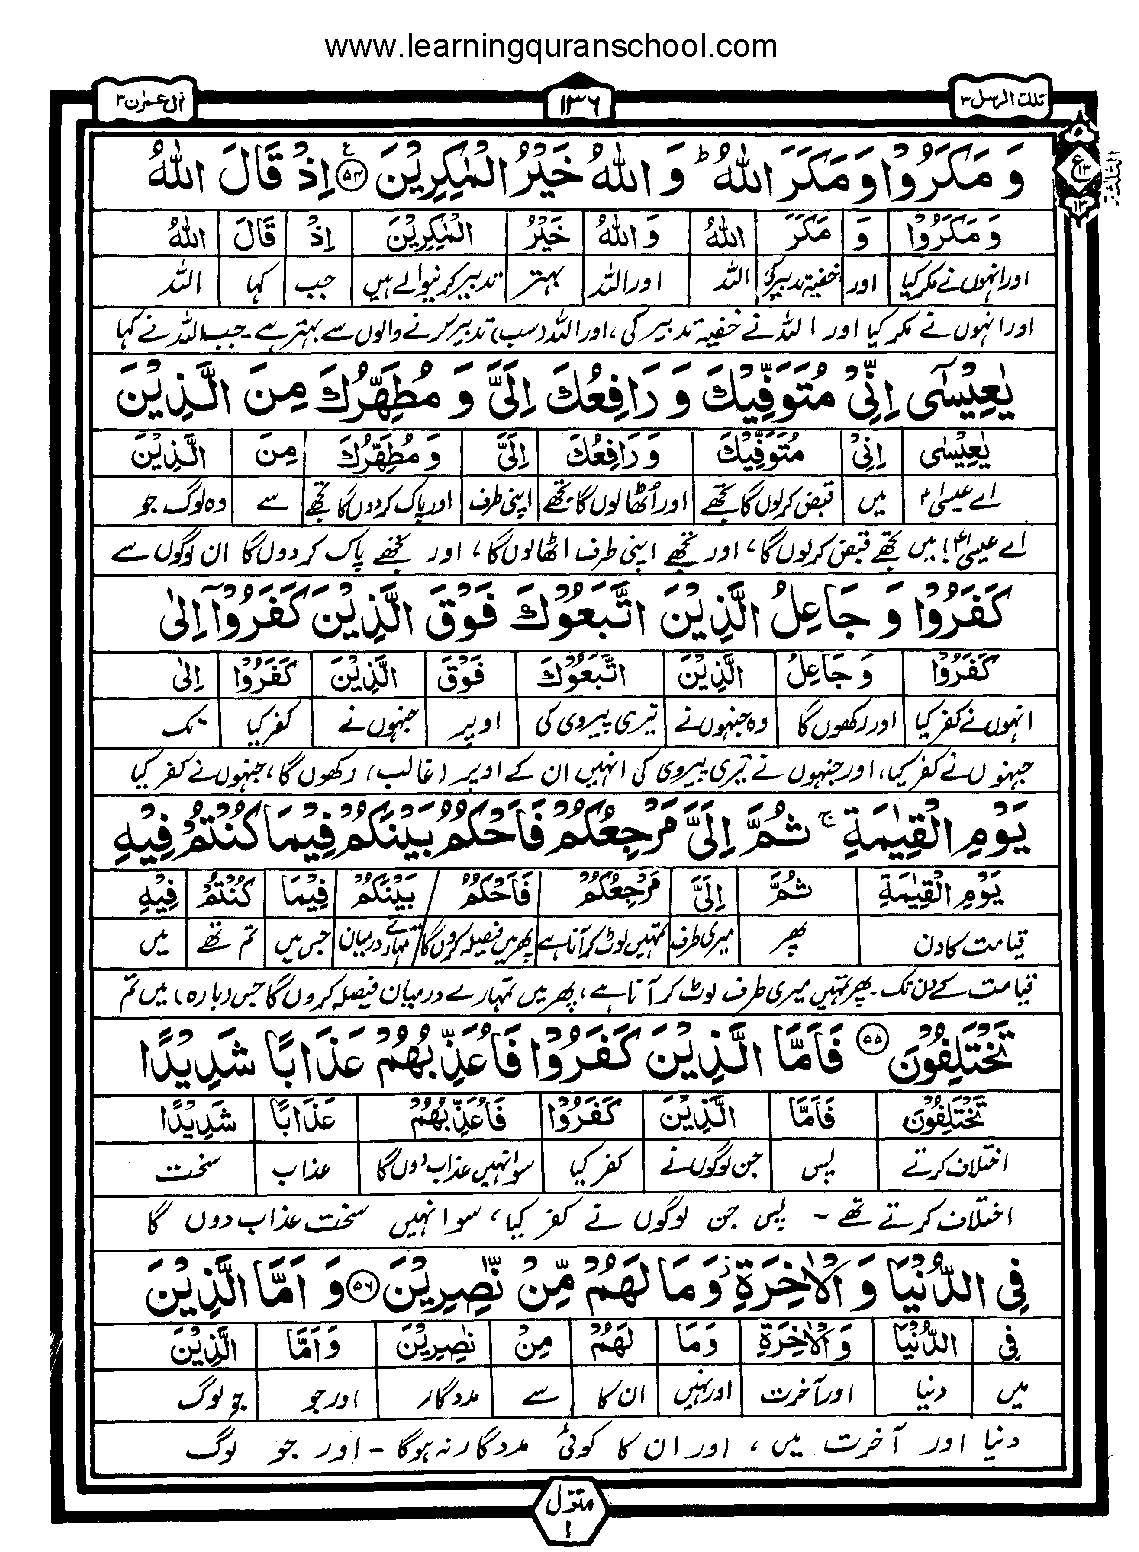 www.learningquranschool.com
تلك الرسل ۳
۱۳۶
اٰل عمرٰن ۳
وَ مَكَرُوْا وَ مَكَرَ اللّٰهُ ؕ وَ اللّٰهُ خَيْرُ الْمٰكِرِيْنَ ۵۴ اِذْ قَالَ اللّٰهُ
وَ مَكَرُوْا وَ مَكَرَ اللّٰهُ وَ اللّٰهُ خَيْرُ الْمٰكِرِيْنَ اِذْ قَالَ اللّٰهُ
اور انہوں نے مکر کیا اور خفیہ تدبیر کی اللہ اور اللہ بہتر تدبیر کرنیوالے ہیں جب کہا اللہ
اور انہوں نے مکر کیا اور اللہ نے خفیہ تدبیر کی، اور اللہ (سب) تدبیر کرنے والوں سے بہتر ہے۔ جب اللہ نے کہا
يٰعِيْسٰۤى اِنِّىْ مُتَوَفِّيْكَ وَ رَافِعُكَ اِلَىَّ وَ مُطَهِّرُكَ مِنَ الَّذِيْنَ
يٰعِيْسٰۤى اِنِّىْ مُتَوَفِّيْكَ وَ رَافِعُكَ اِلَىَّ وَ مُطَهِّرُكَ مِنَ الَّذِيْنَ
اے عیسیٰؑ میں قبض کرلوں گا تجھے اور اُٹھا لوں گا تجھے اپنی طرف اور پاک کردوں گا تجھے سے وہ لوگ جو
اے عیسیٰؑ! میں تجھے قبض کرلوں گا، اور تجھے اپنی طرف اٹھا لوں گا، اور تجھے پاک کردوں گا ان لوگوں سے
كَفَرُوْا وَ جَاعِلُ الَّذِيْنَ اتَّبَعُوْكَ فَوْقَ الَّذِيْنَ كَفَرُوْۤا اِلٰى
كَفَرُوْا وَ جَاعِلُ الَّذِيْنَ اتَّبَعُوْكَ فَوْقَ الَّذِيْنَ كَفَرُوْۤا اِلٰى
انہوں نے کفر کیا اور رکھوں گا وہ جنہوں نے تیری پیروی کی اوپر جنہوں نے کفر کیا تک
جنہوں نے کفر کیا، اور جنہوں نے تیری پیروی کی انہیں ان کے اوپر (غالب) رکھوں گا، جنہوں نے کفر کیا
يَوْمِ الْقِيٰمَةِ ۚ ثُمَّ اِلَىَّ مَرْجِعُكُمْ فَاَحْكُمُ بَيْنَكُمْ فِيْمَا كُنْتُمْ فِيْهِ
يَوْمِ الْقِيٰمَةِ ثُمَّ اِلَىَّ مَرْجِعُكُمْ فَاَحْكُمُ بَيْنَكُمْ فِيْمَا كُنْتُمْ فِيْهِ
قیامت کا دن پھر میری طرف تمہیں لوٹ کر آنا ہے پھر میں فیصلہ کروں گا تمہارے درمیان جس میں تم تھے میں
قیامت کے دن تک۔ پھر تمہیں میری طرف لوٹ کر آنا ہے، پھر میں تمہارے درمیان فیصلہ کروں گا جس (بارہ) میں تم
تَخْتَلِفُوْنَ ۵۵ فَاَمَّا الَّذِيْنَ كَفَرُوْا فَاُعَذِّبُهُمْ عَذَابًا شَدِيْدًا
تَخْتَلِفُوْنَ فَاَمَّا الَّذِيْنَ كَفَرُوْا فَاُعَذِّبُهُمْ عَذَابًا شَدِيْدًا
اختلاف کرتے پس جن لوگوں نے کفر کیا سو انہیں عذاب دوں گا عذاب سخت
اختلاف کرتے تھے۔ پس جن لوگوں نے کفر کیا، سو انہیں سخت عذاب دوں گا
فِى الدُّنْيَا وَ الْاٰخِرَةِ ؗ وَ مَا لَهُمْ مِّنْ نّٰصِرِيْنَ ۵۶ وَ اَمَّا الَّذِيْنَ
فِى الدُّنْيَا وَ الْاٰخِرَةِ وَ مَا لَهُمْ مِنْ نٰصِرِيْنَ وَ اَمَّا الَّذِيْنَ
میں دنیا اور آخرت اور نہیں ان کا سے مددگار اور جو جو لوگ
دنیا اور آخرت میں، اور ان کا کوئی مددگار نہ ہوگا۔ اور جو لوگ
منزل
۱